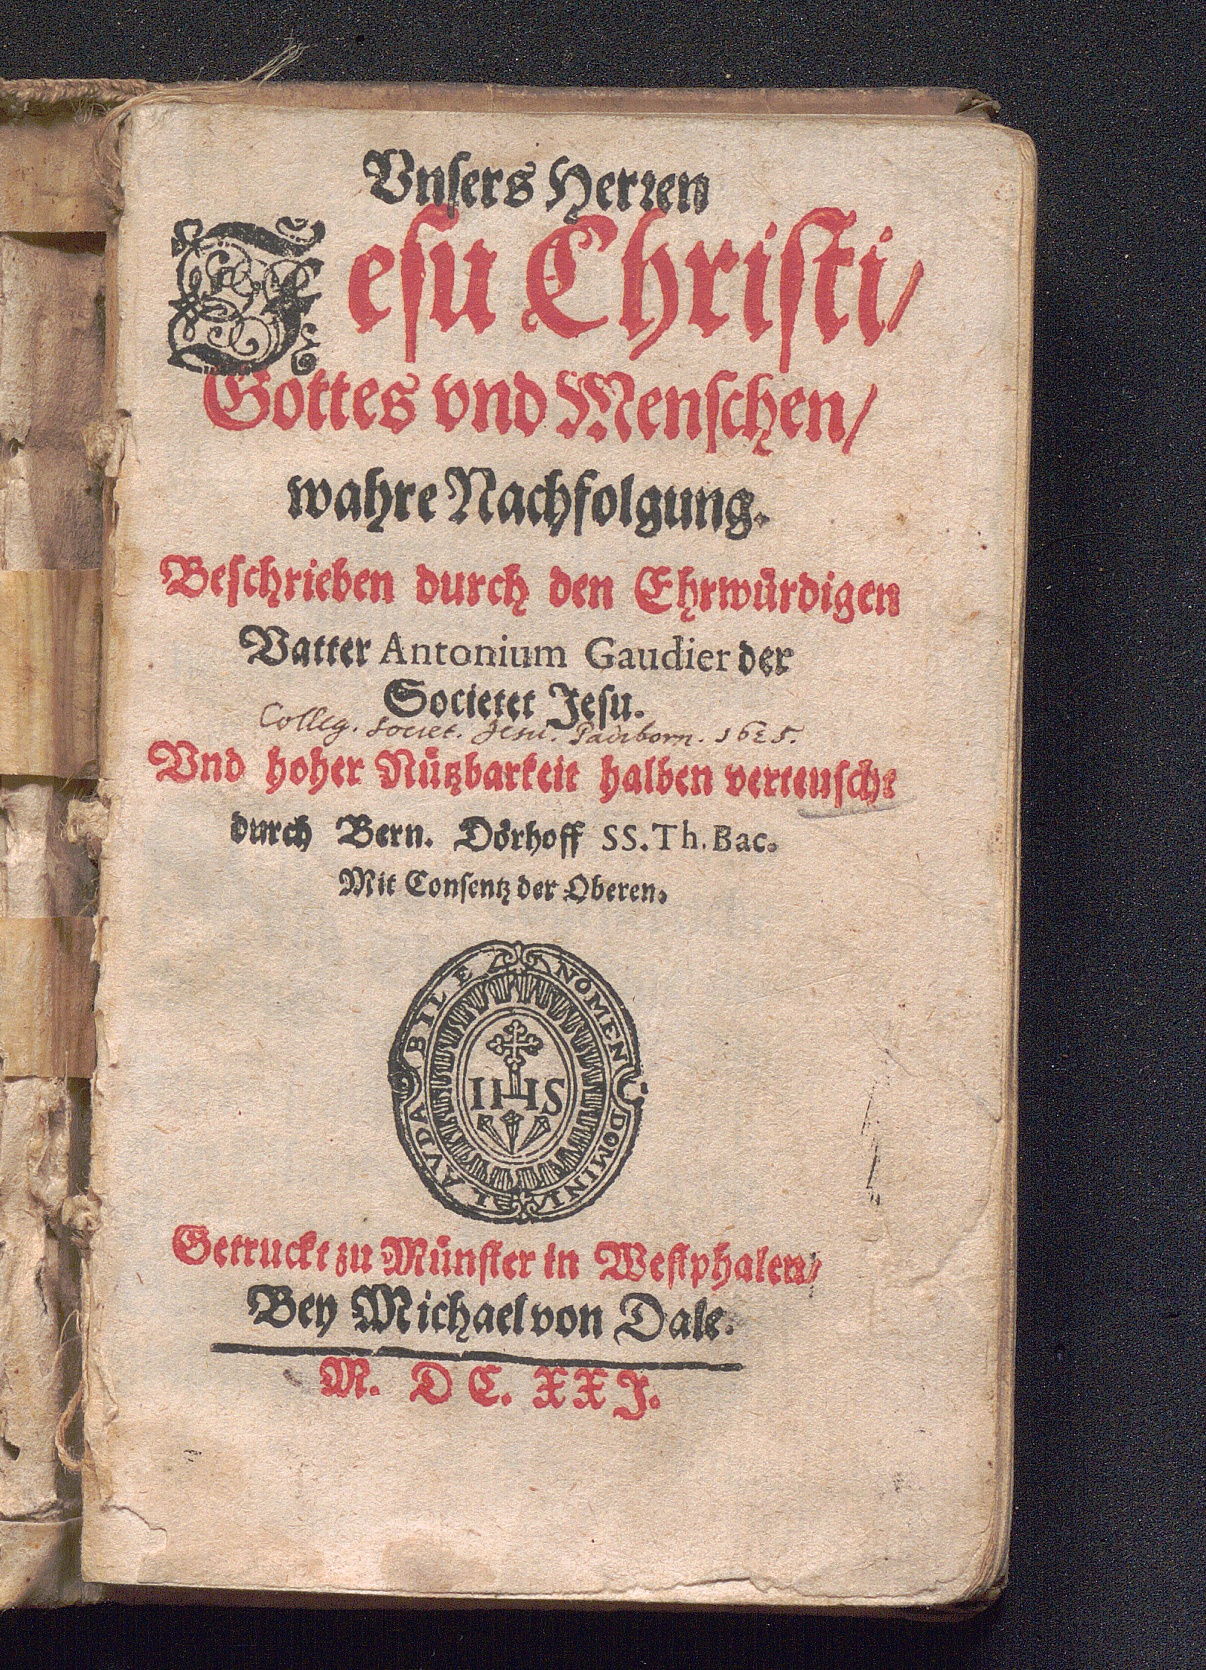 Vnsers Herren
Jesu Christi/
Gottes vnd Menschen/
wahre Nachfolgung.
Beschrieben durch den Ehrwürdigen
Vatter Antonium Gaudier der
Societet Jesu.
Colleg. Societ. Jesu. Paderborn. 1625.
Vnd hoher Nützbarkeit halben verteuscht
durch Bern. Dörhoff SS. Th. Bac.
Mit Consentz der Oberen.
LAVDABILE NOMEN DOMINI
IHS
Getruckt zu Münster in Westphalen/
Bey Michael von Dale.
M. DC. XXI.